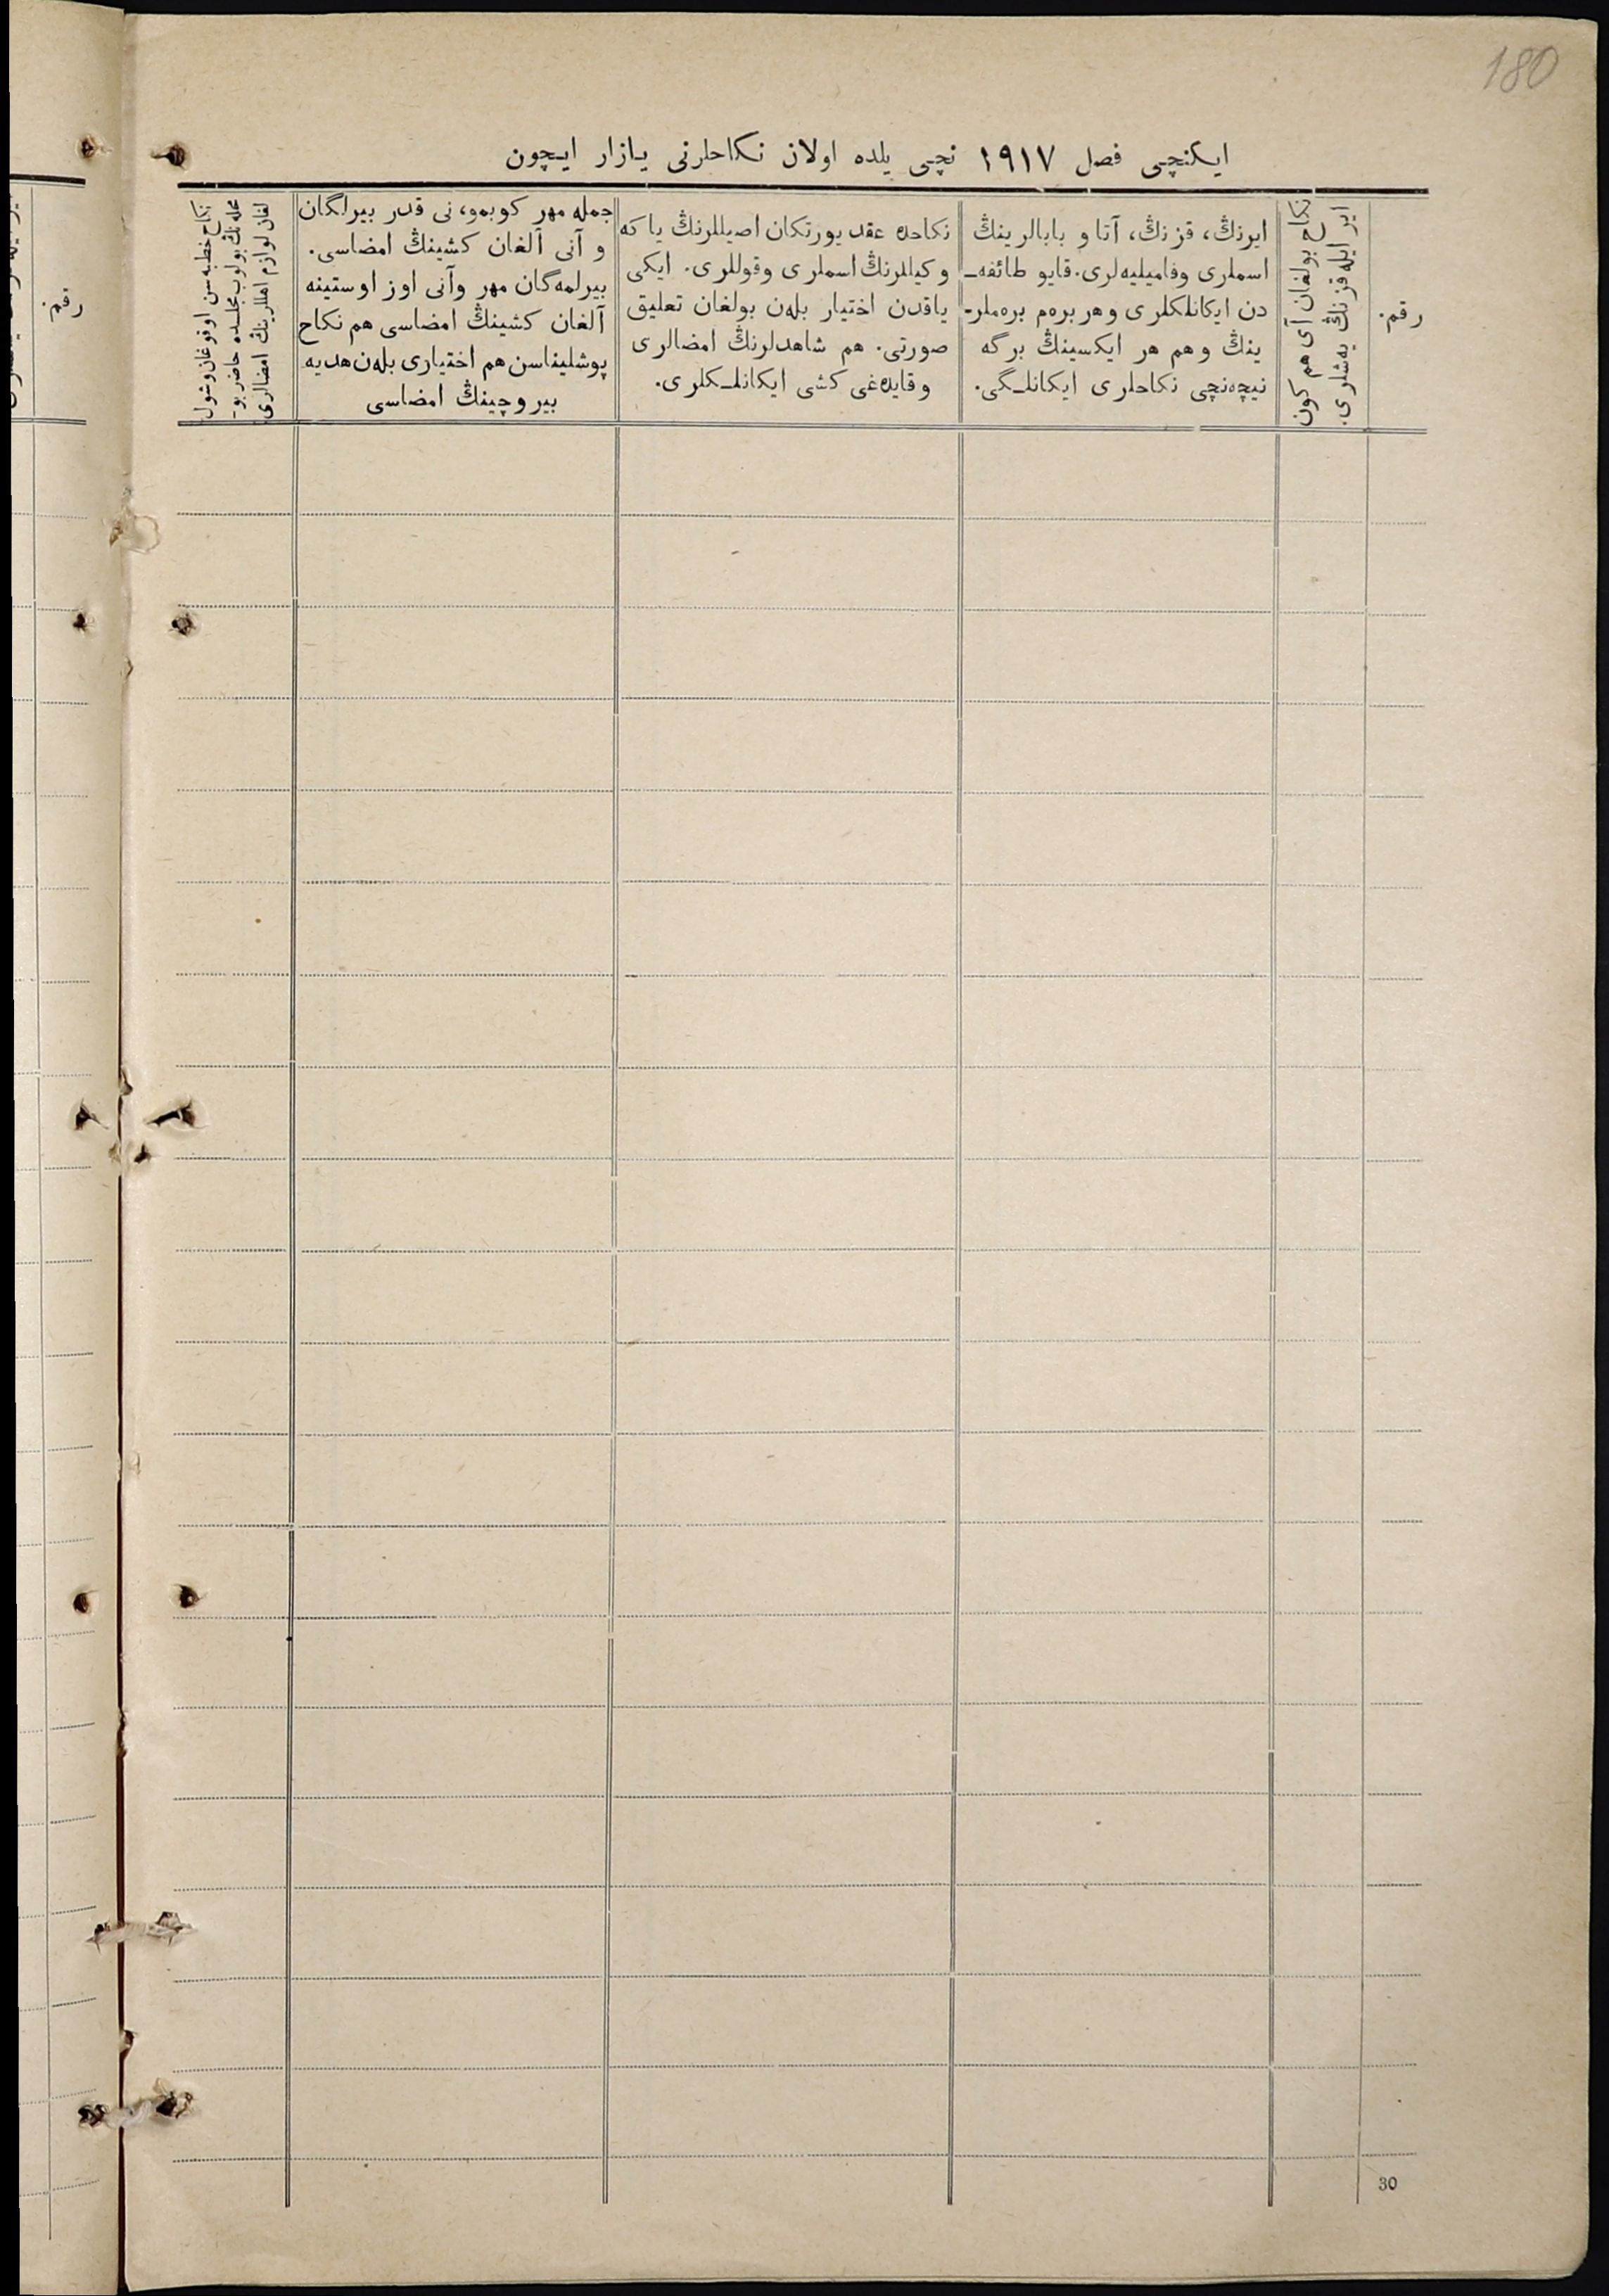 180
ایکنچی فصل ۱۹۱۷ نچی یلده اولان نکاحلرنی یازار ایچون
رقم.
نکاح بولغان آی هم کون
ایر ایله قزنڭ یه‌شلری.
ایرنڭ، قزنڭ، آتا و بابالرینڭ
اسملری وفامیلیه‌لری. قایو طائفه‌ـ
دن ایکانلکلری و هر بره‌م بره‌ملر-
ینڭ و هم هر ایکسینڭ برگه
نیچه‌نچی نکاحلری ایکانلـگی.
نکاحده عقد یورتکان اصیللرنڭ یا که
وکیللرنڭ اسملری وقوللری. ایکی
یاقدن اختیار بله‌ن بولغان تعلیق
صورتی. هم شاهدلرنڭ امضالری
و قایده‌غی کشی ایکانلـکلری.
جمله مهر کوبمو، نی قدر بیرلگان
و آنی آلغان کشینڭ امضاسی.
بیرلمه‌گان مهر وآنی اوز اوستینه
آلغان کشینڭ امضاسی هم نکاح
پوشلیناسن هم اختیاری بله‌ن هدیه
بیروچینڭ امضاسی
نکاح خطبه‌سن اوقوغان وشول
محله‌نڭ بولوب مجلسده حاضر بو-
لغان لوازم اهللرینڭ امضالری.
30
رقم.